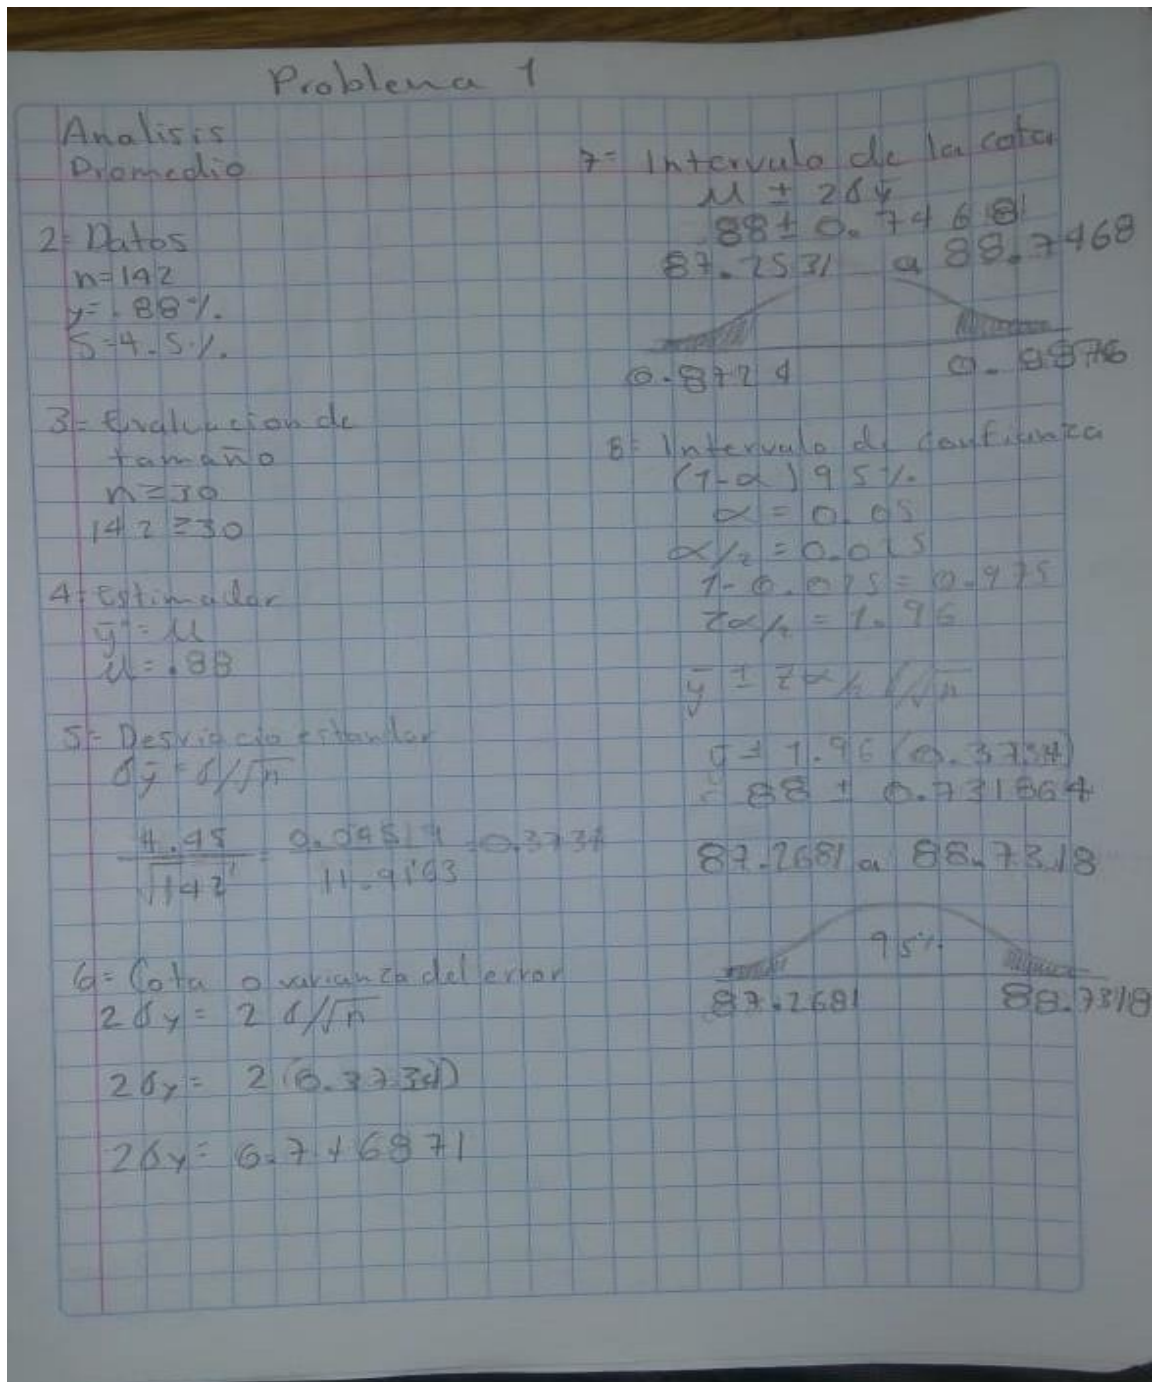 Problema 1
Analisis
Promedio
2= Datos
n=142
y= .88%.
S=4.5%.
3= Evaluacion de
tamaño
n≥30
142≥30
4= Estimador
ȳ = μ
μ = .88
5= Desviacio estandar
σȳ = σ/√n
/√142 = 11.9163 = 0.3734
6= Cota o varianza del error
2σy = 2 σ/√n
2σy = 2(0.3734)
2σy =
7= Intervalo de la cota
μ ± 2σȳ
88 ± 0.74681
87.2531 a 88.7468
0.8724
8= Intervalo de confianza
(1-α) 95%.
α = 0.05
α/2 = 0.025
1-0.025 = 0.975
zα/2 = 1.96
ȳ ± zα/2 /√n
ȳ ± 1.96 (0.3734)
= 88 ± 0.731864
87.2681 a 88.7318
95%
87.2681 88.7318